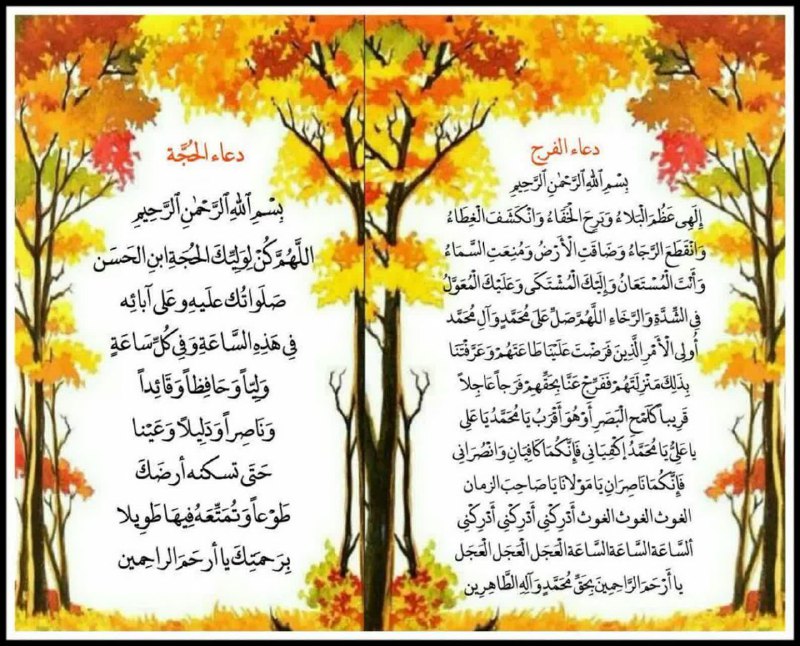 دعاء الفرج
بِسْمِ ٱللَّهِ ٱلرَّحْمٰنِ ٱلرَّحِيمِ
إِلَهِى عَظُمَ الْبَلاءُ وَبَرِحَ الْخَفَاءُ وَانْكَشَفَ الْغِطَاءُ
وَانْقَطَعَ الرَّجَاءُ وَضَاقَتِ الْأَرْضُ وَمُنِعَتِ السَّمَاءُ
وَأَنْتَ الْمُسْتَعَانُ وَإِلَيْكَ الْمُشْتَكَى وَعَلَيْكَ الْمُعَوَّلُ
فِي الشِّدَّةِ وَالرَّخَاءِ اللَّهُمَّ صَلِّ عَلَى مُحَمَّدٍ وَآلِ مُحَمَّد
أُولِى الْأَمْرِ الَّذِينَ فَرَضْتَ عَلَيْنَا طَاعَتَهُمْ وَعَرَّفْتَنَا
بِذَلِكَ مَنْزِلَتَهُمْ فَفَرِّجْ عَنَّا بِحَقِّهِمْ فَرَجاً عَاجِلاً
قَرِيباً كَلَمْحِ الْبَصَرِ أَوْ هُوَ أَقْرَبُ يَا مُحَمَّدُ يَا عَلِى
يا عَلِىُّ يَا مُحَمَّدُ إكْفِيَانِى فَإِنَّكُمَا كَافِيَانِ وَانْصُرَانِى
فَإِنَّكُمَا نَاصِرَانِ يَا مَوْلَانَا يَا صَاحِبَ الزمان
الغوث الغوث الغوث أَدْرِكْنِى أَدْرِكْنِى أَدْرِكْنِى
ألسَّاعَة السَّاعَة السَّاعَة الْعَجَل الْعَجَل الْعَجَل
يا أَرْحَمَ الرَّاحِمِينَ بِحَقِّ مُحَمَّدٍ وَآلِهِ الطَّاهِرِين
دعاء الحُجَّة
بِسْمِ ٱللَّهِ ٱلرَّحْمٰنِ ٱلرَّحِيمِ
اللَّهُمَّ كُنْ لِوَلِيِّكَ الحُجةِ ابنِ الحَسَن
صَلَواتُك علَيهِ وعَلى آبائِه
فِي هَذِهِ السَّاعَةِ وَفِي كُلِّ سَاعَةٍ
وَلِيّاً وَحَافِظاً وَقَائِداً
وَنَاصِراً وَدَلِيلاً وَعَيْنا
حَتَى تسكنه أرضَكَ
طَوْعاً وَتُمَتِّعَهُ فِيهَا طَوِيلا
بِرَحمَتِكَ يا أرحَمَ الراحِمين